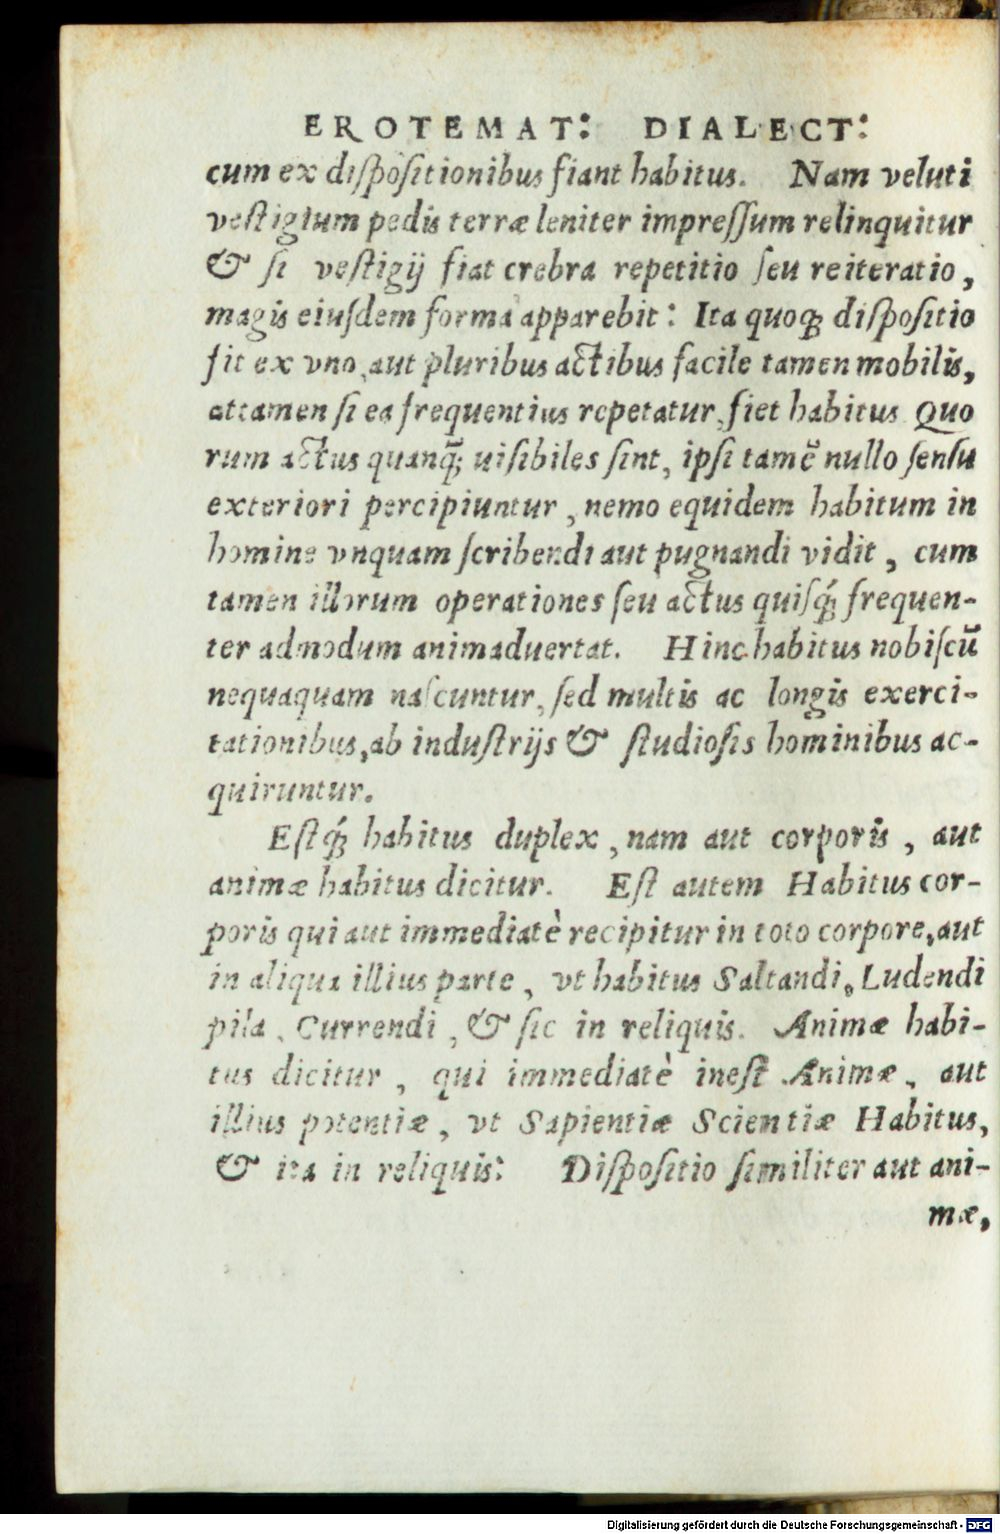 EROTEMAT: DIALECT:
cum ex diſpoſitionibus fiant habitus. Nam veluti
veſtigium pedis terræ leniter impreſſum relinquitur
& ſi veſtigij fiat crebra repetitio ſeu reiteratio,
magis eiuſdem forma apparebit: Ita quoq; diſpoſitio
fit ex vno, aut pluribus actibus facile tamen mobilis,
attamen ſi ea frequentius repetatur, fiet habitus Quo
rum actus quanq̃; uiſibiles ſint, ipſi tamẽ nullo ſenſu
exteriori percipiuntur, nemo equidem habitum in
homine vnquam ſcribendi aut pugnandi vidit, cum
tamen illorum operationes ſeu actus quiſq́; frequen-
ter admodum animaduertat. Hinc habitus nobiſcũ
nequaquam naſcuntur, ſed multis ac longis exerci-
tationibus, ab induſtrijs & ſtudioſis hominibus ac-
quiruntur.
Eſtq́; habitus duplex, nam aut corporis, aut
animæ habitus dicitur. Eſt autem Habitus cor-
poris qui aut immediatè recipitur in toto corpore, aut
in aliqua illius parte, vt habitus Saltandi, Ludendi
pila, Currendi, & ſic in reliquis. Animæ habi-
tus dicitur, qui immediatè ineſt Animæ, aut
illius potentiæ, vt Sapientiæ Scientiæ Habitus,
& ita in reliquis: Diſpoſitio ſimiliter aut ani-
mæ,
Digitalisierung gefördert durch die Deutsche Forschungsgemeinschaft - DFG